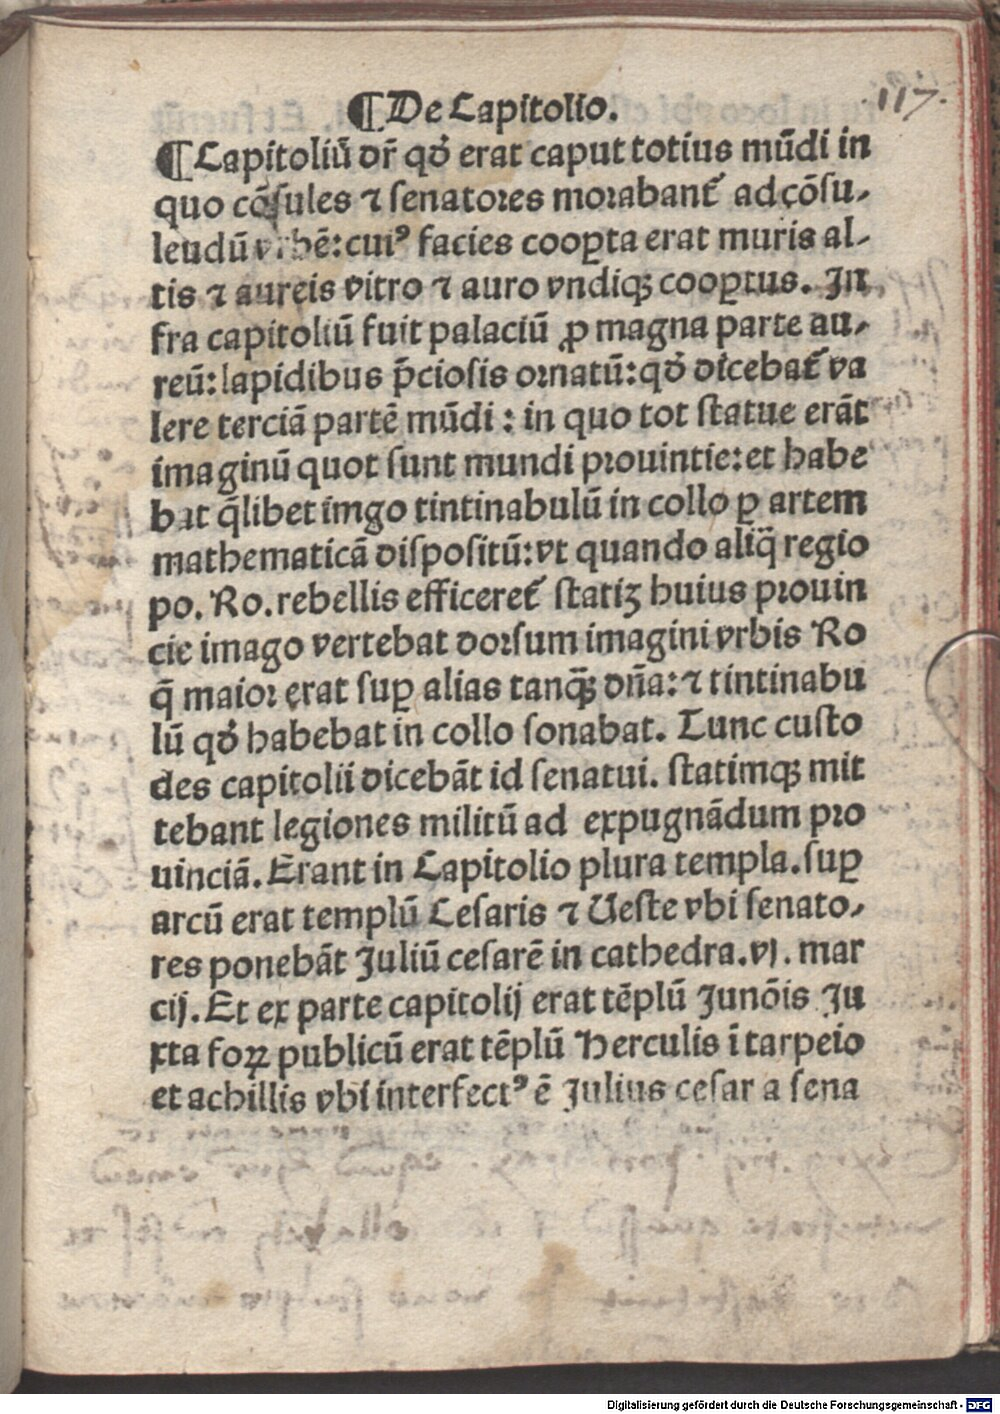 117.
¶De Capitolio.
¶Capitoliū dr̄ qđ erat caput totius mūdi in
quo cōsules ⁊ senatores morabant᷑ ad cōsu⸗
lendū vrbē:cuiꝰ facies coopꝑta erat muris al⸗
tis ⁊ aureis vitro ⁊ auro vndiqꝫ cooꝑtus. In
fra capitoliū fuit palaciū ꝓ magna parte au⸗
reū:lapidibus p̄ciosis ornatū:qđ dicebat᷑ va
lere terciā partē mūdi : in quo tot statue erāt
imaginū quot sunt mundi prouintie:et habe
bat q̄libet imgo tintinabulū in collo ꝑ artem
mathematicā dispositū:vt quando aliq̄ regio
po. Ro.rebellis efficeret᷑ statiꝫ huius prouin
cie imago vertebat dorsum imagini vrbis Ro
q̄ maior erat suꝑ alias tanqꝫ dn̄a:⁊ tintinabu
lū qđ habebat in collo sonabat. Tunc custo
des capitolii dicebāt id senatui. statimqꝫ mit
tebant legiones militū ad expugnādum pro
uinciā. Erant in Capitolio plura templa.suꝑ
arcū erat templū Cesaris ⁊ Ueste vbi senato⸗
res ponebāt Juliū cesarē in cathedra.vj. mar
cij. Et ex parte capitolij erat tēplū Junōis Ju
xta foꝝ publicū erat tēplū Herculis ī tarpeio
et achillis vbi interfectꝰ ē Julius cesar a sena
Digitalisierung gefördert durch die Deutsche Forschungsgemeinschaft - DFG